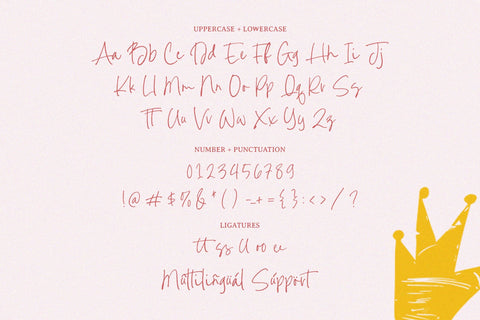 UPPERCASE + LOWERCASE
Aa Bb Cc Dd Ee Ff Gg Hh Ii Jj
Kk Ll Mm Nn Oo Pp Qq Rr Ss
Tt Uu Vv Ww Xx Yy Zz
NUMBER + PUNCTUATION
0123456789
!@#$%&*()-_+={};:<>/?
LIGATURES
tt ss ll oo ee
Multilingual Support